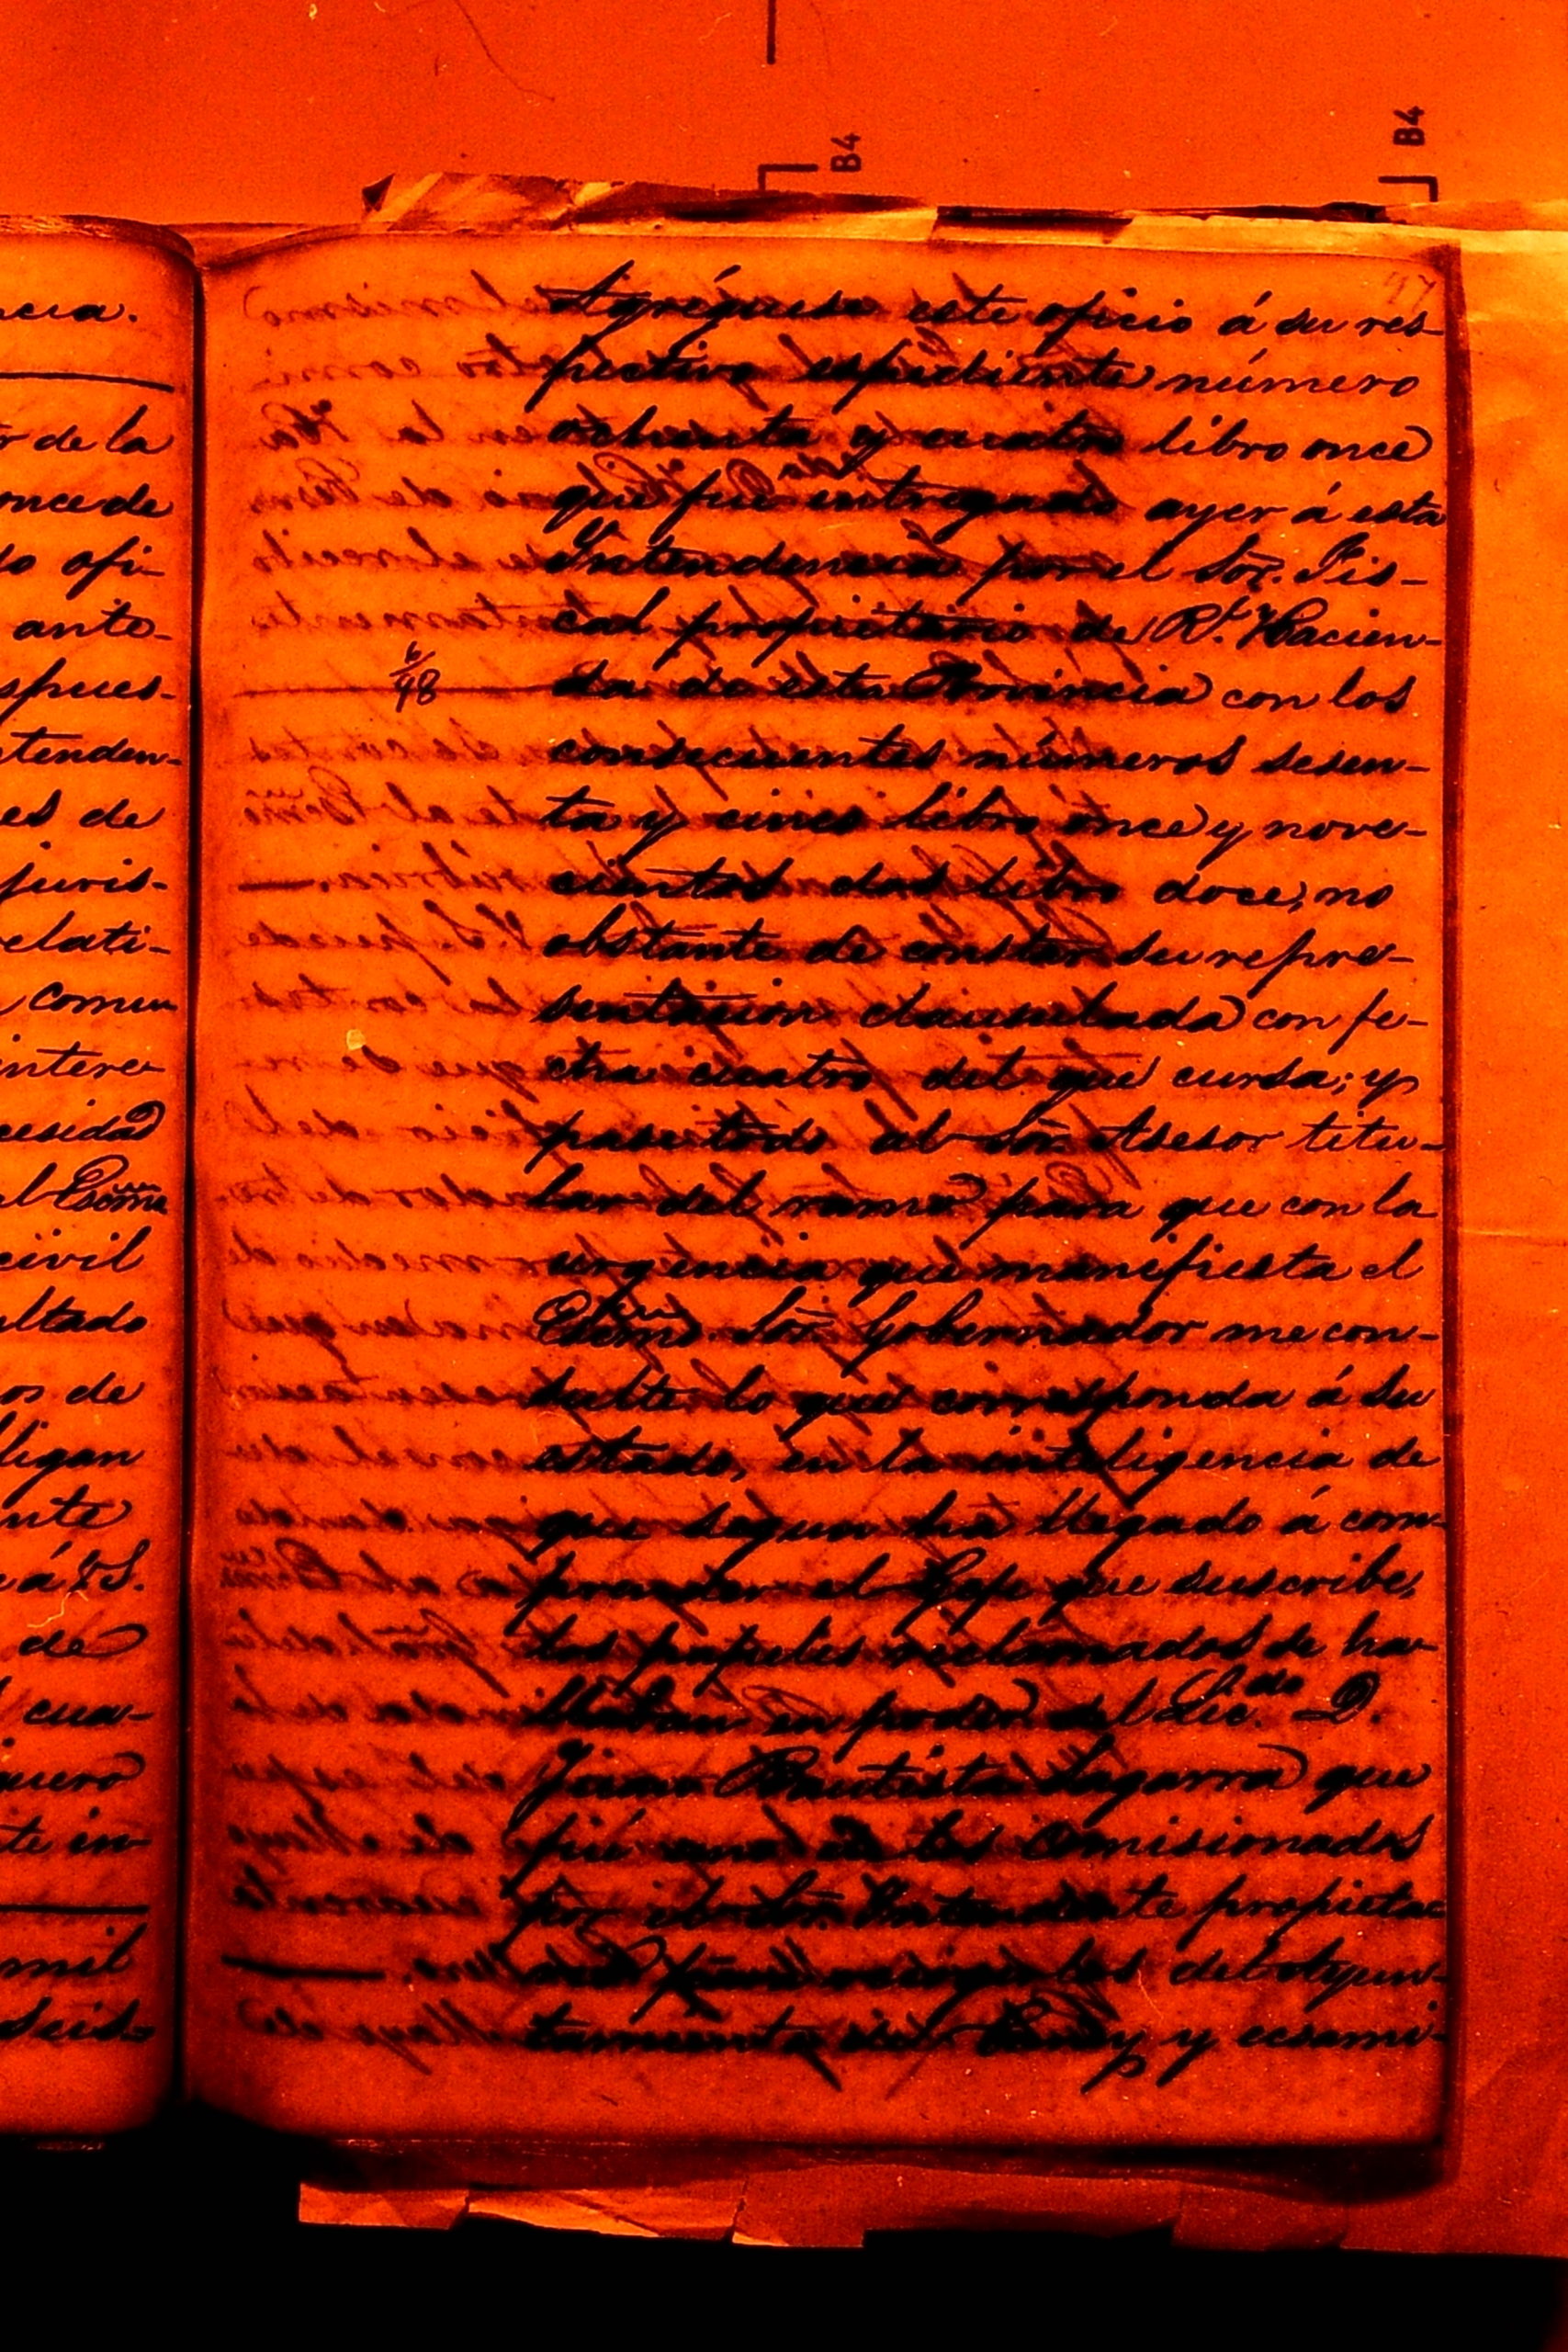 B4
B4
97
ncia.
r de la
once de
do ofi-
ante-
spues-
ntenden-
es de
juris-
relati-
comun
intere-
cesidad
al Escmo
civil
ultado
os de
ligan
nte
á V.S.
de
cua-
quero
te in-
mil
seis-
Agréguese este oficio á su res-
pectivo espediente número
ochenta y cuatro libro once
que fué entregado ayer á esta
Yntendencia por el Sor. Fis-
cal propietario de Rl. Hacien-
6/98
da de esta Provincia con los
consecuentes números sesen-
ta y cinco libro once y nove-
cientos dos libro doce, no
obstante de constar su repre-
sentacion clausulada con fe-
cha cuatro del que cursa; y
pase todo al Sor. Asesor titu-
lar del ramo para que con la
urgencia que manifiesta el
Escmo. Sor. Gobernador me con-
sulte lo que corresponda á su
estado, en la inteligencia de
que segun ha llegado á com-
prender el Gefe que suscribe,
los papeles reclamados se ha-
llaban en poder del Licdo. D.
Juan Bautista Sagarra que
fué uno de los comisionados
por el Sor. Yntendente propieta-
rio para recogerlos del Ayun-
tamiento del and y ecsami-